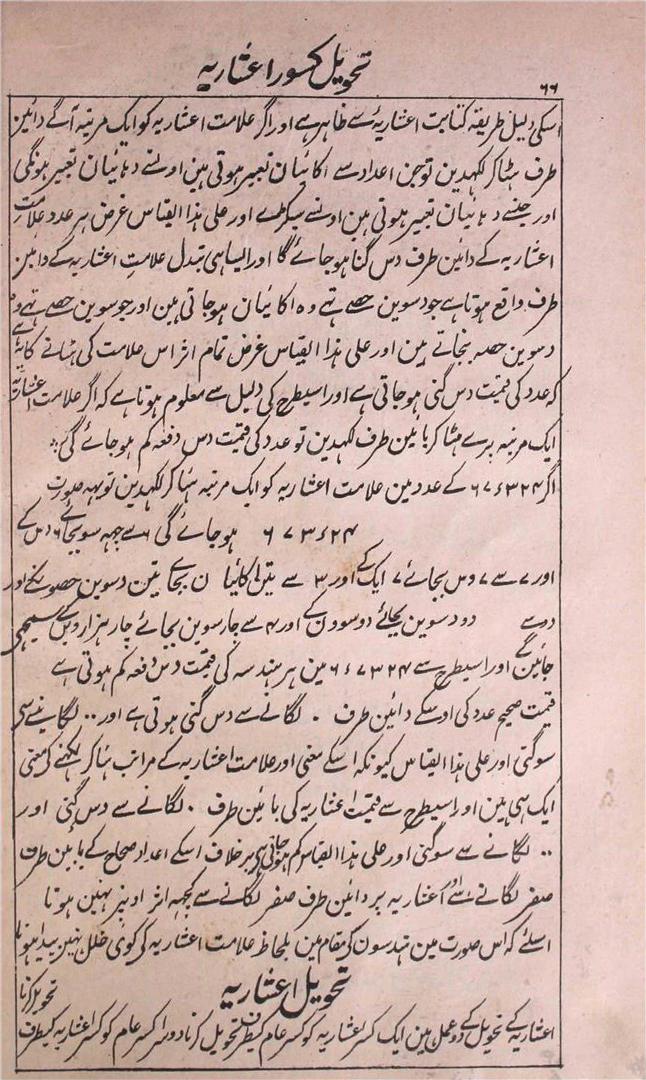 تحویل کسور اعشاریہ
۶۶
اسکی دلیل طریقہ کتابت اعشاریہ سے ظاہر ہے اور اگر علامت اعشاریہ کو ایک مرتبہ آگے دائین
طرف ہٹا کر لکہدین تو جن اعداد سے اکائیان تعبیر ہوتی ہین اونسے دہائیان تعبیر ہونگی
اور جنسے دہائیان تعبیر ہوتی ہین اونسے سیکڑے اور علی ہذا القیاس غرض ہر عدد علامت
اعشاریہ کے دائین طرف دس گنا ہو جائے گا اور ایسا ہی تبدل علامتِ اعشاریہ کے دائین
طرف واقع ہوتا ہے جو دسوین حصے تہے وہ اکائیان ہو جاتی ہین اور جو سوین حصے تہے وہ
دسوین حصہ بنجاتے ہین اور علی ہذا القیاس غرض تمام اثر اس علامت کی ہٹانے کا یہ ہے
کہ عدد کی قیمت دس گنی ہو جاتی ہے اور اسیطرح کی دلیل سے معلوم ہوتا ہے کہ اگر علامت اعشاریہ
ایک مرتبہ پرے ہٹا کر بائین طرف لکہدین تو عدد کی قیمت دس دفعہ کم ہو جائے گی
اگر ۶۷۳۲۴ کے عدد مین علامت اعشاریہ کو ایک مرتبہ ہٹا کر لکہدین تو یہہ صورت
۶۷۳۲۴ ہو جائے گی ۶ سے چہہ سو بجائے ۶ دس کے
اور ۷ سے ۷ دس بجائے ۷ ایک کے اور ۳ سے تین اکائیان بجائے تین دسوین حصونکے اور
دو سے دو دسوین بجائے دو سوون کے اور ۴ سے چار سوین بجائے چار ہزاروین کے سمجہی
جائین گے اور اسیطرح سے ۶۷۳۲۴ مین ہر ہندسہ کی قیمت دس دفعہ کم ہوتی ہے
قیمت صحیح عدد کی اوسکے دائین طرف ۰ لگانے سے دس گنی ہوتی ہے اور ۰۰ لگانے سے
سو گنی اور علی ہذا القیاس کیونکہ اسکے معنی اور علامت اعشاریہ کے مراتب ہٹا کر لکہنے کے معنی
ایک ہی ہین اور اسیطرح سے قیمت اعشاریہ کی بائین طرف ۰ لگانے سے دس گنی اور
۰۰ لگانے سے سو گنی اور علی ہذا القیاس کم ہو جاتی ہے برخلاف اسکے اعداد صحاح کے بائین طرف
صفر لگانے سے اور اعشاریہ پر دائین طرف صفر لگانے سے کچہہ اثر اونپر نہین ہوتا
اسلئے کہ اس صورت مین ہندسون کی مقام مین بلحاظ علامت اعشاریہ کی کوی خلل نہین پیدا ہوتا
تحویل اعشاریہ
اعشاریہ کے تحویل کے دو عمل ہین ایک کسر اعشاریہ کو کسر عام کیطرف تحویل کرنا دوسرا کسر عام کو کسر اعشاریہ کیطرف
تحویل کرنا